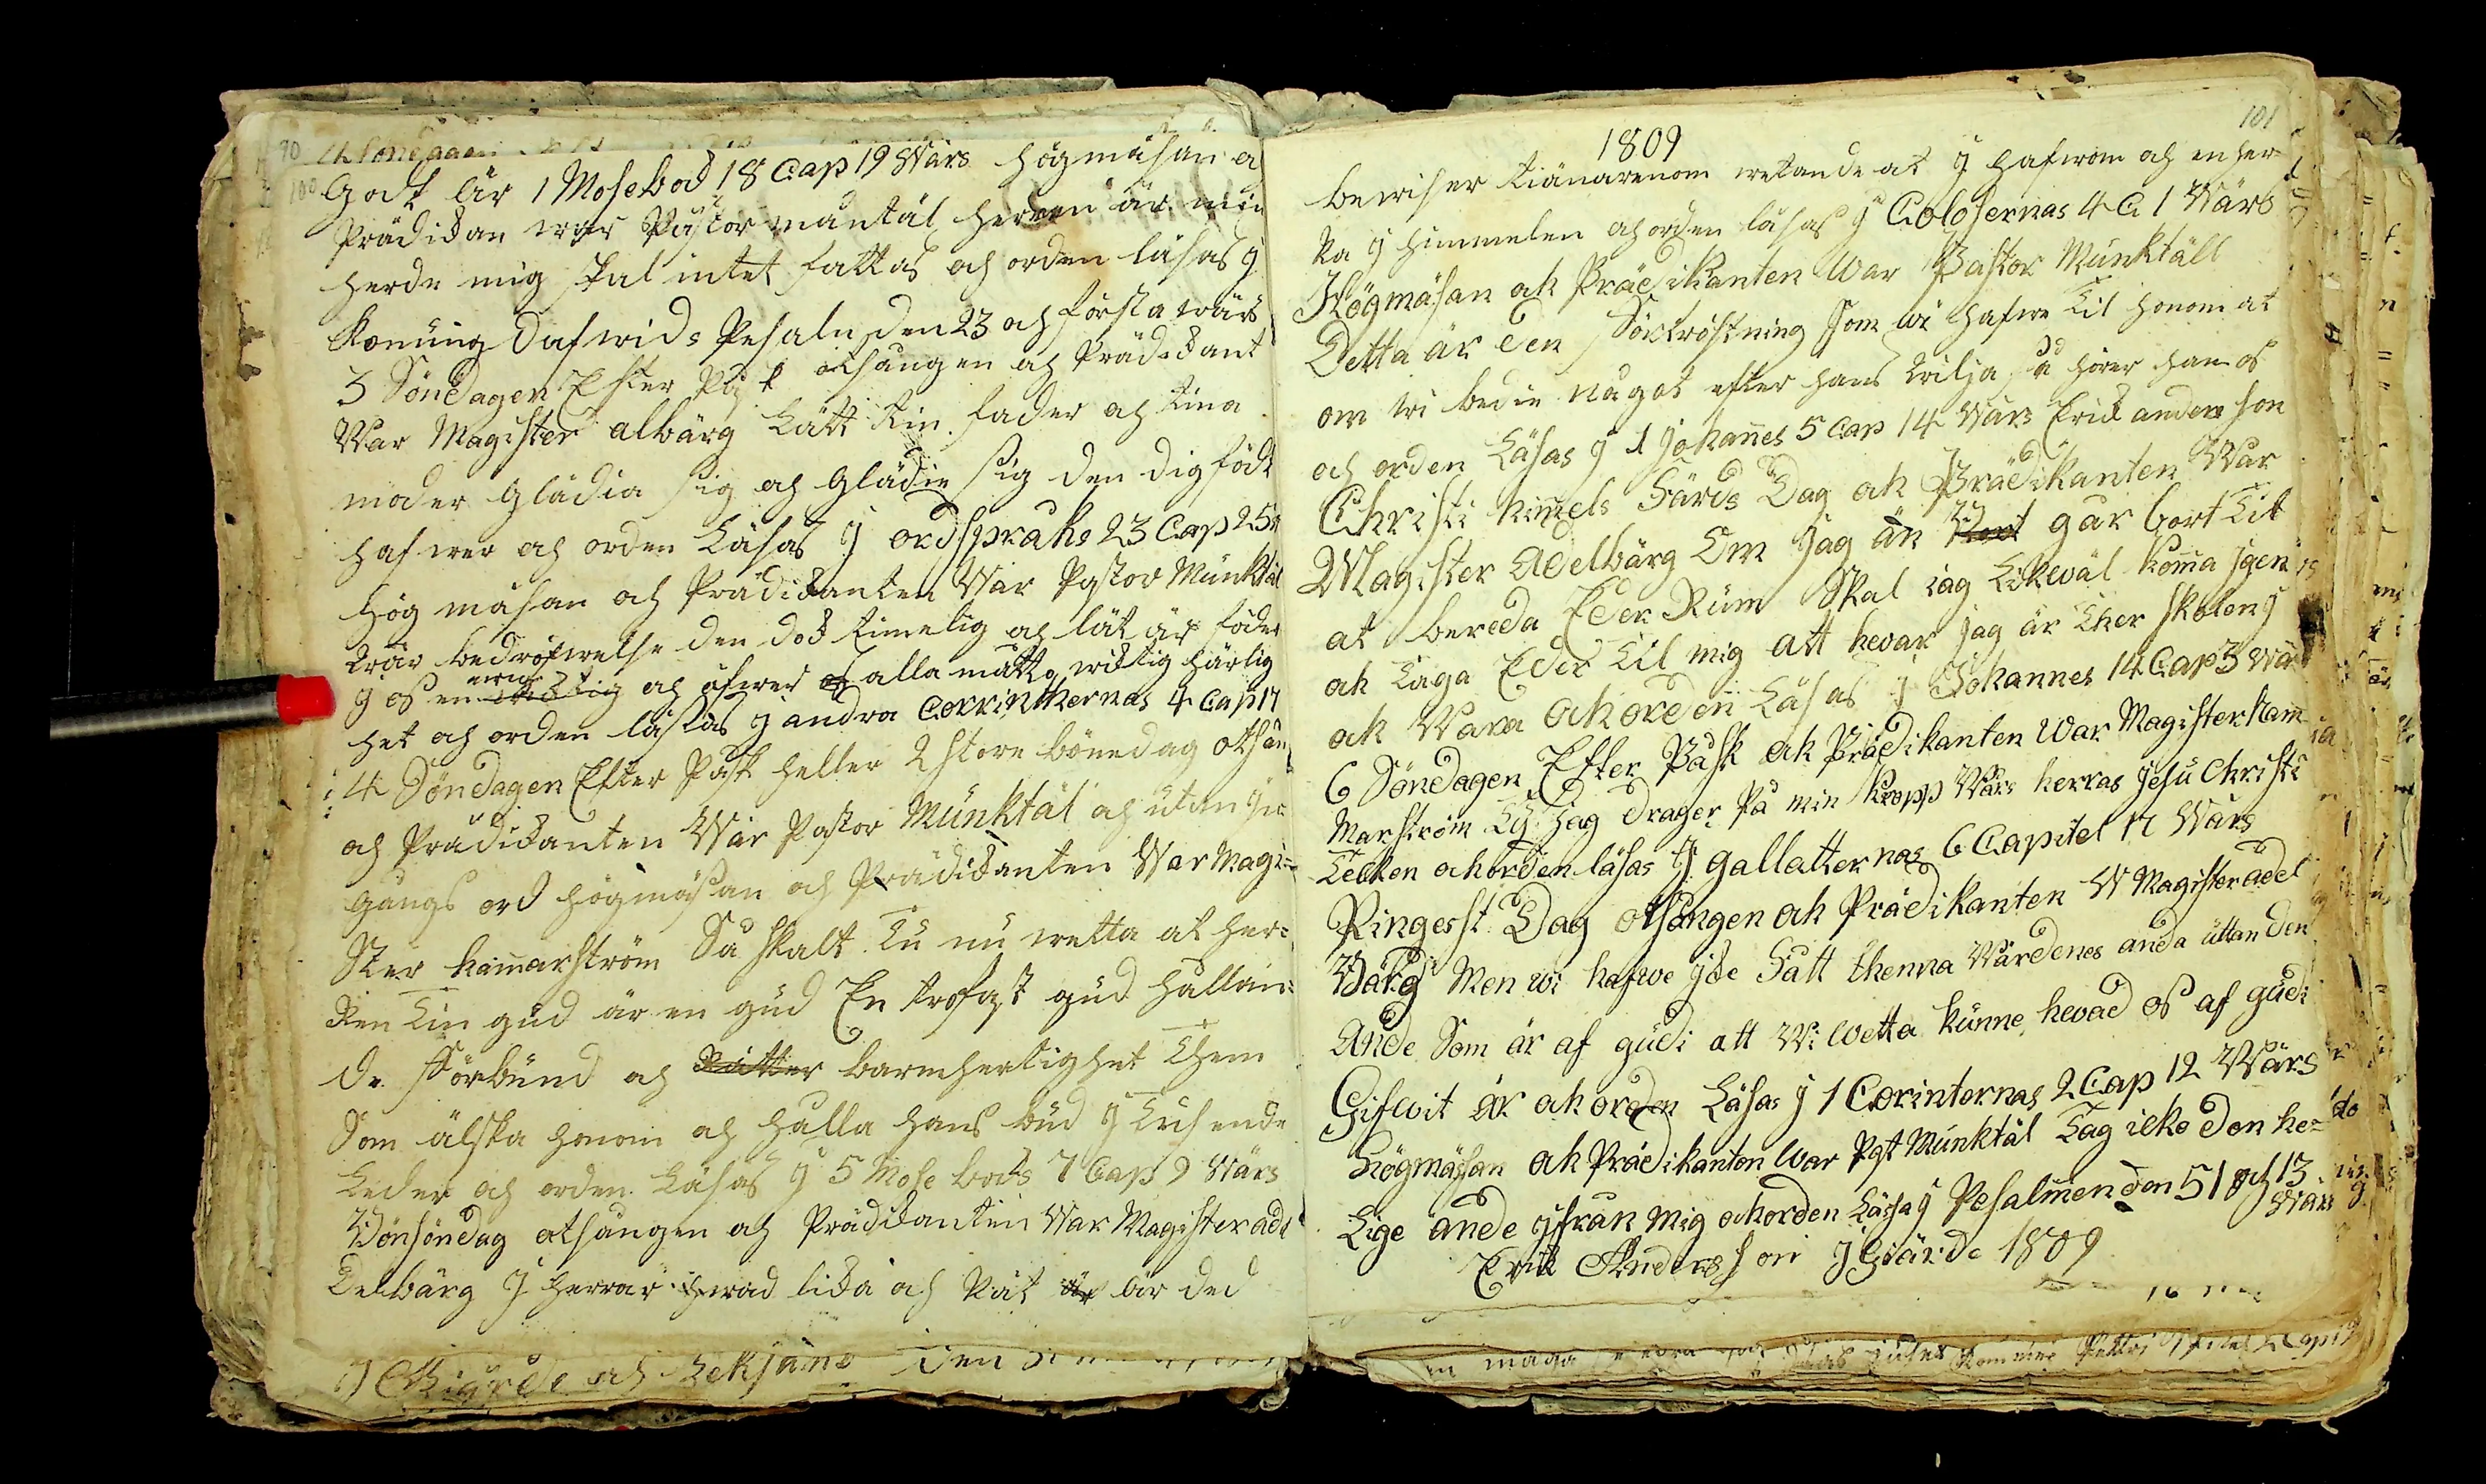 90
100
Godt är 1 Mosebock 18 Cap 19 Wärs högmäsan
Prädikan war Pastor mäntäl herren är min
herde mig skal intet fattas och orden läsas y
konung Dafwids Pesaln den 23 och första wärs
3 Söndagen Efter Påsk otsången och Prädikant
War Magister albärg Lätt tin fader och tina
moder Glädia sig och Glädie sig den dig född
hafwer och orden Läsas y ordspraks 23 Cap 25
hög mäsan och Prädikanten War Pastor Münktäl
wår bedröfwelse den dock timelig och lät är föder
ewig
y os en och öfwer alla måtto wicktig härlig
het och orden läsas y andra Corrinthernas 4 Cap 17
4 Söndagen Efter Påsk heller 2 store bönedag otsån
och Prädikanten War Pastor Münktäl och utan
gångs ord högmäsan och Prädikanten War Magi=
ster hamarström Så skalt Tu nu wetta at her=
ren Tin gud är en gud En trofast gud hallan=
de förbünd och barmhertighet Them
Som älska honom och halla hans büd y tusende
Leder och orden Läsas y 5 Mose boks 7 Cap 9 Wärs
Bönsöndag otsången och Prädikanten War Magister ade
Delbärg J herrar hwad lika och Rät är ded
J Giärde och Leksand Den
101
1809
bewiser tiänarenom wetande at y hafwom och en her
ra y himmelen och orden läsas y Colosernas 4 C 1 Wärs
Högmäsan ok Prädikanten War Pastor Münktäll
Detta är den Förtröstning som wi hafwe til honom at
om wi bedie något efter hans wilja så hörer han os
och orden Läsas y 1 Johannes 5 Cap 14 Wärs Erik anders son
Christi himels Färds Dag ok Prädikanten War
Magister Adelbärg Om Jag än gar bort Til
at bereda Eder Rüm Skal iag Likewäl komma Jgen
ok Taga Eder Til mig att hevar jag är Ther skolen y
ok Vara ok orden Läsas J Johannes 14 Cap 3 Wär
6 Söndagen Efter Påsk ok Prädikanten War Magister Ham
Marström Ty Jag Drager På min kropp Wårs herras Jesu Christi
Tecken ok orden läsas y gallatternas 6 Capitel 17 Wärs
Pingesst Dag otsången ok Prädikanten W Magister adel
Bärg Men wi hafwe jke Fått thenna Wärdenes anda üttan den
Ande Som är af güdi att Wi Wetta künne hevad os af güdi
Gifwit är ok orden Läsas y 1 Corinternas 2 Cap 12 Wärs
Högmäsan ok Prädikanten War Past Münktäl Tag icke den he=
Lige ande yfrån mig ok orden Läsa y Pesalmen den 51 och 13
Wärs
Erik Anders son J Giärde 1809